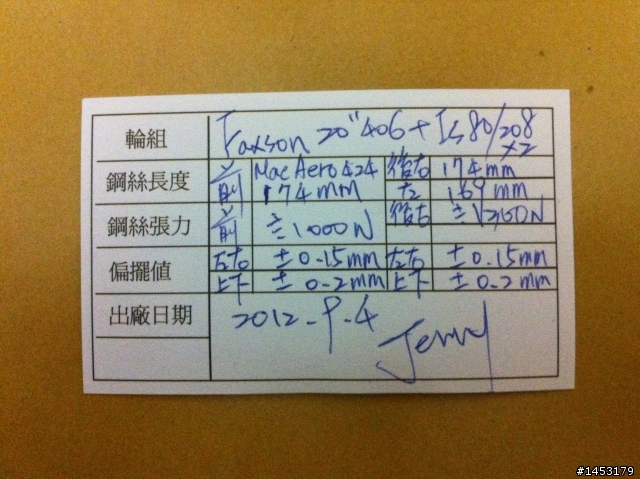 輪組 Faxson 20" 406 + Is 80/208 x2
鋼絲長度 前 Mac Aero 424 後右 174mm
174mm 左 169 mm
鋼絲張力 前 ≒1000N 後右
偏擺值 左右 ±0.15mm 左右 ±0.15mm
上下 ±0.2mm 上下 ±0.2mm
出廠日期 2012.9.4
Jerry
#1453179